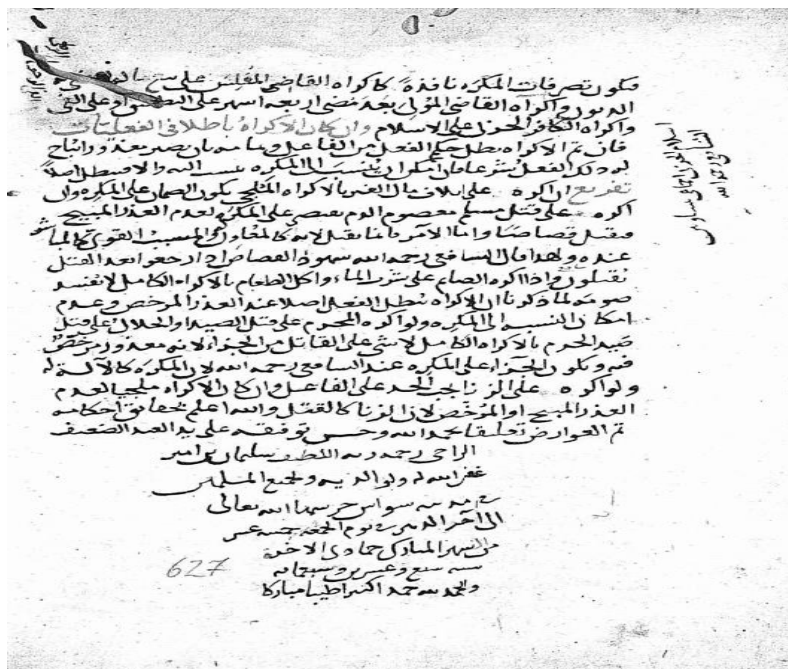 فيكون تصرفات المكره نافذة كاكراه القاضى المفلس على بيع ماله
الديون واكراه القاضى المولى بعد مضى اربعة اشهر على التطليق او على الفئ
واكراه الكافر الحربى على الاسلام وان كان الاكراه باطلا فى الفعليات
فان تم الاكراه بطل حكم الفعل من الفاعل
له ذلك الفعل شرعا فان امكن ان ينسب الى المكره ينسب اليه والا فيبطل اصلا
تفريع ان اكره على اتلاف مال الغير بالاكراه الملجى يكون الضمان على المكره وان
اكره على قتل مسلم معصوم الدم يقتص على المكره لعدم العذر المبيح
فيقتل قصاصا واما الامر فانما يقتل لانه كالفاعل والمسبب القوى كالمباشر
عنده ولهذا قال الشافعى رحمه الله شهود القصاص اذا رجعوا بعد القتل
يقتلون واذا اكره الصائم على شرب الماء واكل الطعام بالاكراه الكامل لا يفسد
صومه لما ذكرنا ان الاكراه يبطل الفعل اصلا عند العذر المرخص وعدم
امكان النسبة الى المكره ولو اكره المحرم على قتل الصيد او الحلال على قتل
صيد الحرم بالاكراه الكامل لا شى على القاتل من الجزاء لانه معذور مرخص
فيه ويكون الجزاء على المكره عند الشافعى رحمه الله لان المكره كالآلة له
ولو اكره على الزنا يجب الحد على الفاعل وان كان الاكراه ملجيا لعدم
العذر المبيح او المرخص لان الزنا كالقتل والله اعلم بحقائق احكامه
تم العوارض تعليقا بحمد الله وحسن توفيقه على يد العبد الضعيف
الراجى رحمة ربه اللطيف سليمان بن امير
غفر الله له ولوالديه ولجميع المسلمين
فى مدينة سيواس حرسها الله تعالى
الى آخر الدهر فى يوم الجمعة خمسة عشر
من الشهر المبارك جمادى الاخرة
سنة سبع وعشرين وسبعمائة
والحمد لله حمدا كثيرا طيبا مباركا
627
اسلام الحربى
الشافعى رحمه الله